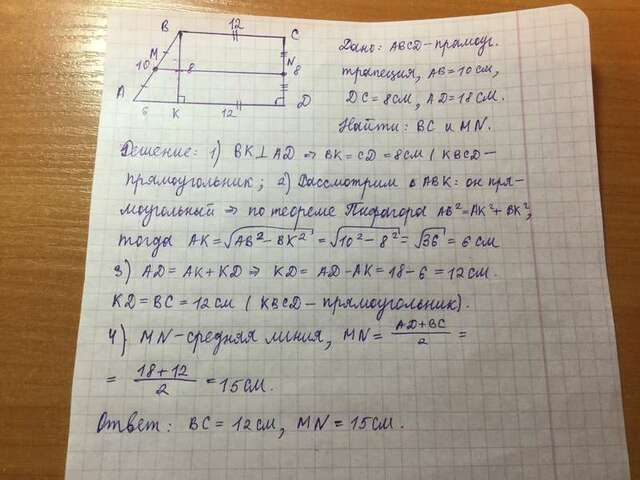 B 12 C
M
10 8 N 8
A
6 K 12 D
Дано: ABCD - прямоуг.
трапеция, AB = 10 см,
DC = 8 см, AD = 18 см.
Найти: BC и MN.
Решение: 1) BK ⊥ AD ⇒ BK = CD = 8 см ( KBCD -
прямоугольник; 2) Рассмотрим △ ABK: он пря-
моугольный ⇒ по теореме Пифагора AB² = AK² + BK²,
тогда AK = √(AB² - BK²) = √(10² - 8²) = √36 = 6 см
3) AD = AK + KD ⇒ KD = AD - AK = 18 - 6 = 12 см.
KD = BC = 12 см ( KBCD - прямоугольник).
4) MN - средняя линия, MN = (AD + BC)/2 =
= (18 + 12)/2 = 15 см.
Ответ: BC = 12 см, MN = 15 см.